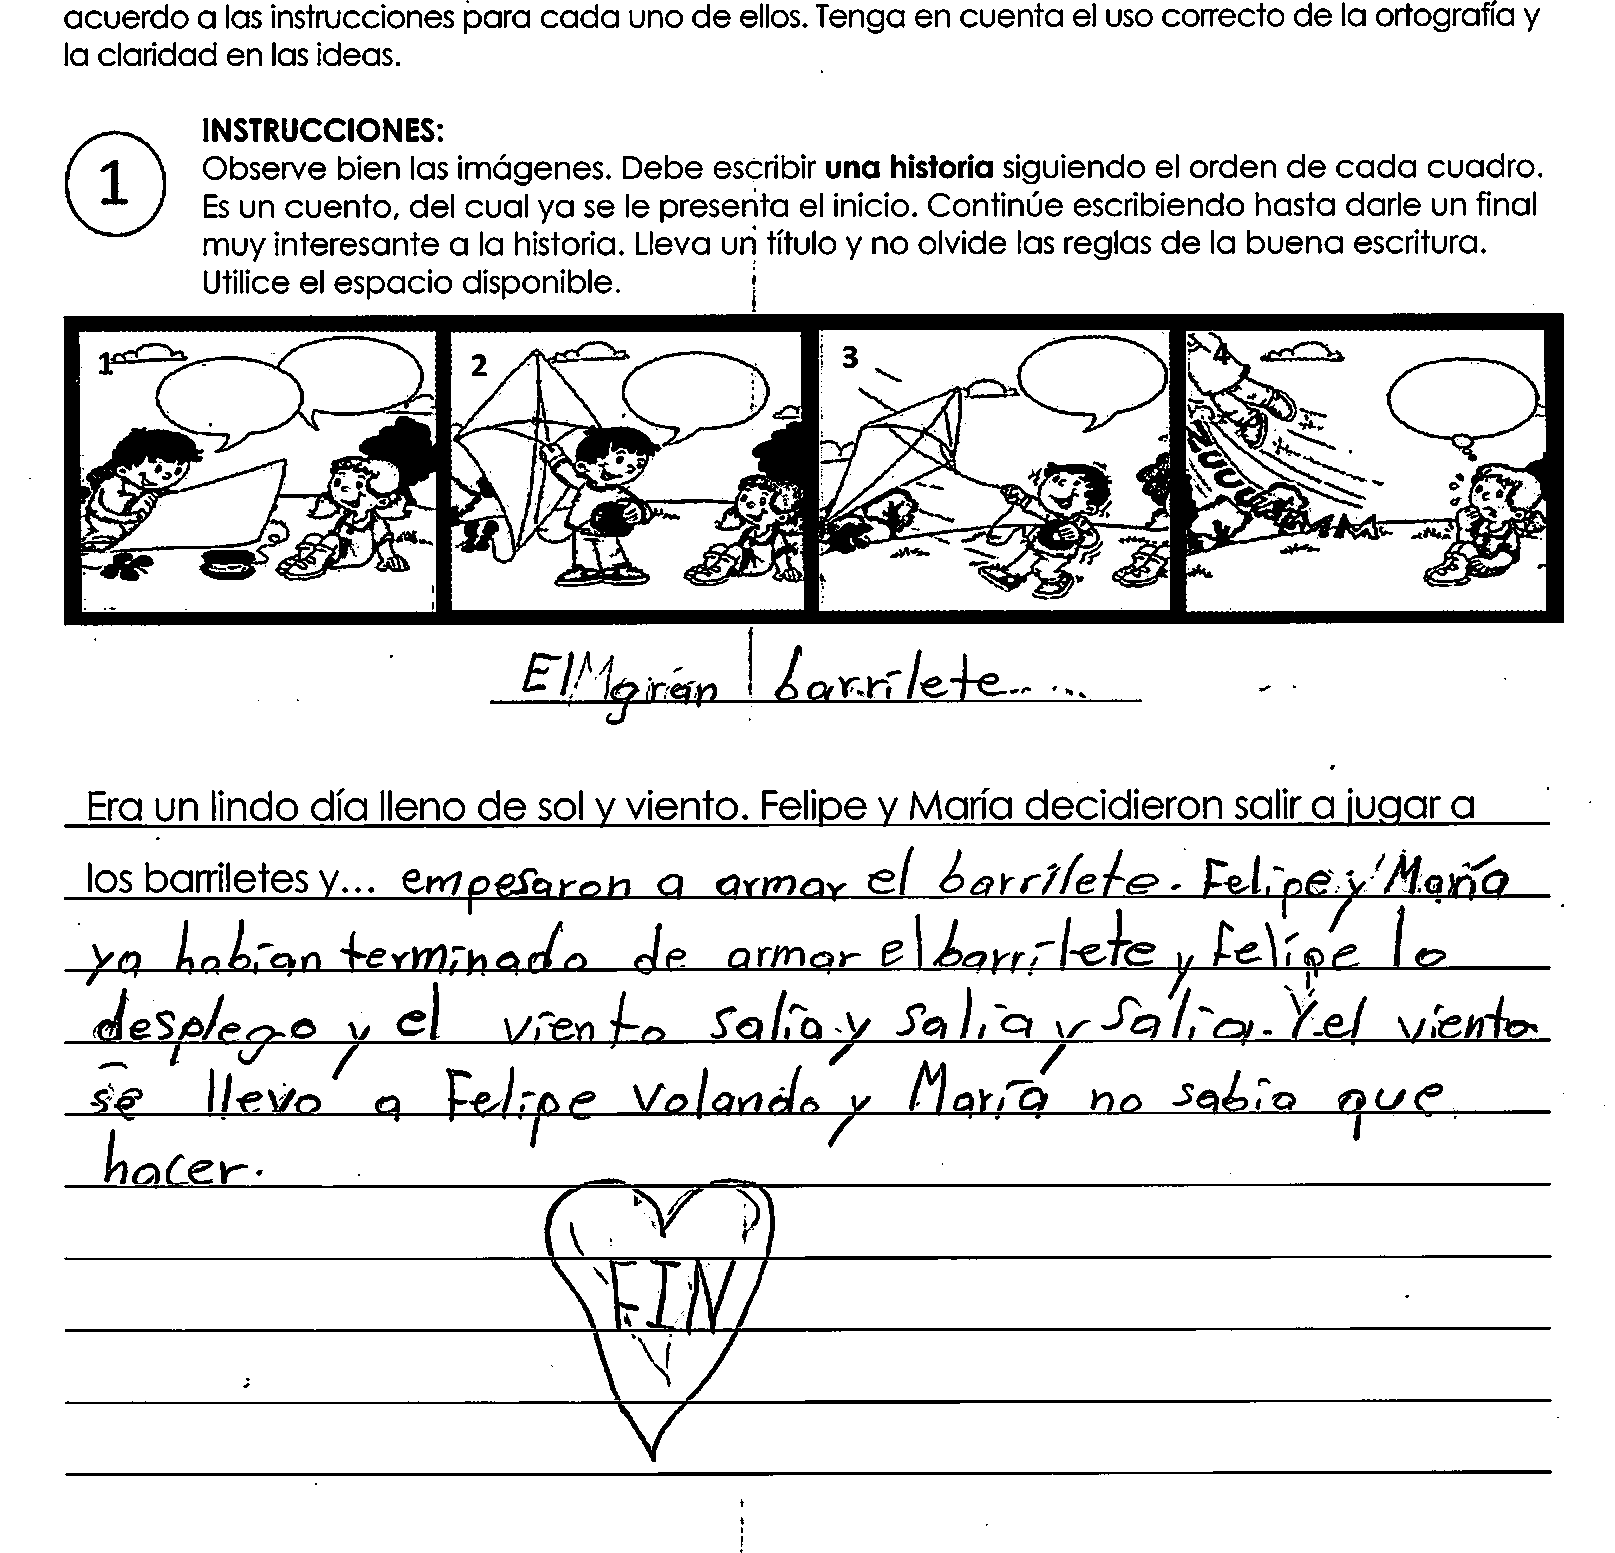 acuerdo a las instrucciones para cada uno de ellos. Tenga en cuenta el uso correcto de la ortografía y
la claridad en las ideas.
1
INSTRUCCIONES:
Observe bien las imágenes. Debe escribir una historia siguiendo el orden de cada cuadro.
Es un cuento, del cual ya se le presenta el inicio. Continúe escribiendo hasta darle un final
muy interesante a la historia. Lleva un título y no olvide las reglas de la buena escritura.
Utilice el espacio disponible.
1 2 3 4
El gran barrilete.....
Era un lindo día lleno de sol y viento. Felipe y María decidieron salir a jugar a
los barriletes y... empesaron a armar el barrilete. Felipe y María
ya habían terminado de armar el barrilete y Felipe lo
desplego y el viento salía y salia y salia. Y el viento
se llevo a Felipe volando y María no sabia que
hacer.
FIN